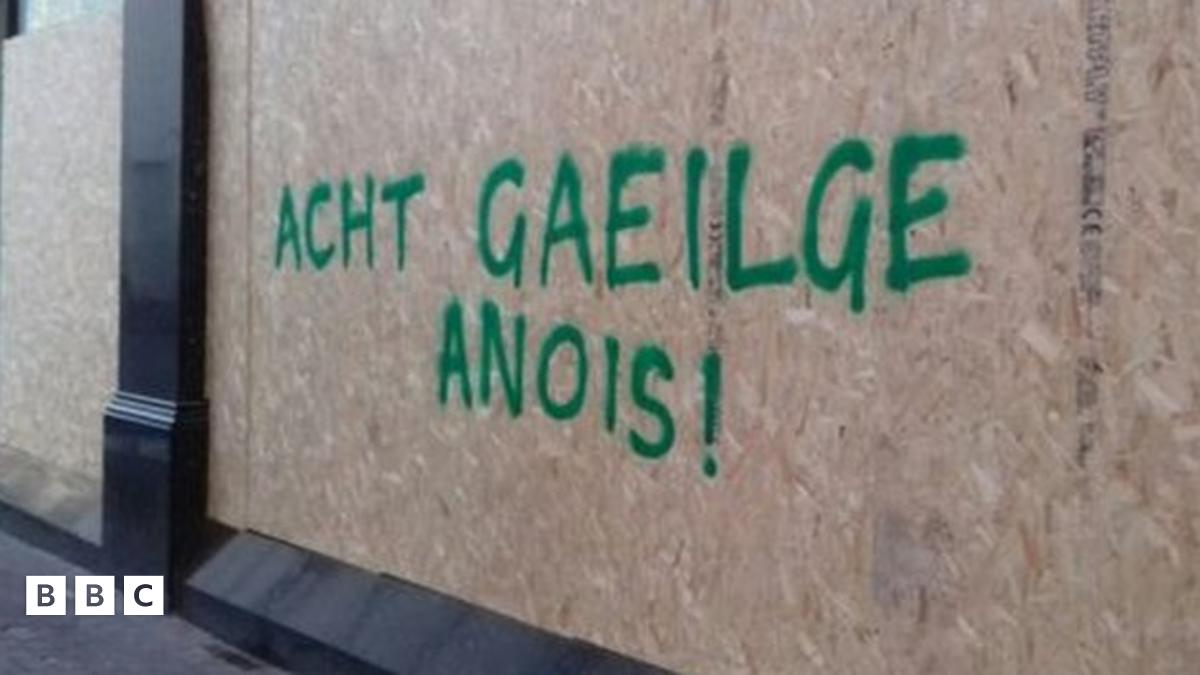 ACHT GAEILGE
ANOIS!
BBC